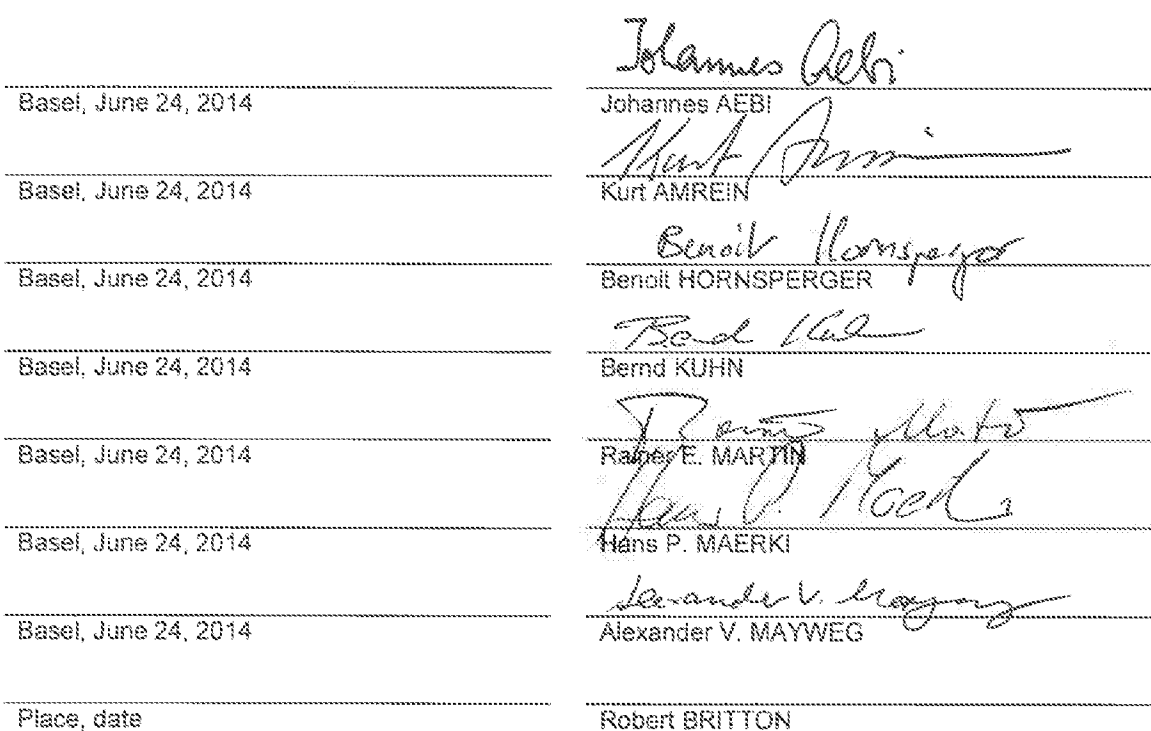 Johannes Aebi
Basel, June 24, 2014 Johannes AEBI
Kurt
Basel, June 24, 2014 Kurt AMREIN
Benoit Hornsperger
Basel, June 24, 2014 Benoit HORNSPERGER
Bernd Kuhn
Basel, June 24, 2014 Bernd KUHN
Basel, June 24, 2014 Rainer E. MARTIN
Hans P. Maerki
Basel, June 24, 2014 Hans P. MAERKI
Basel, June 24, 2014 Alexander V. MAYWEG
Place, date Robert BRITTON